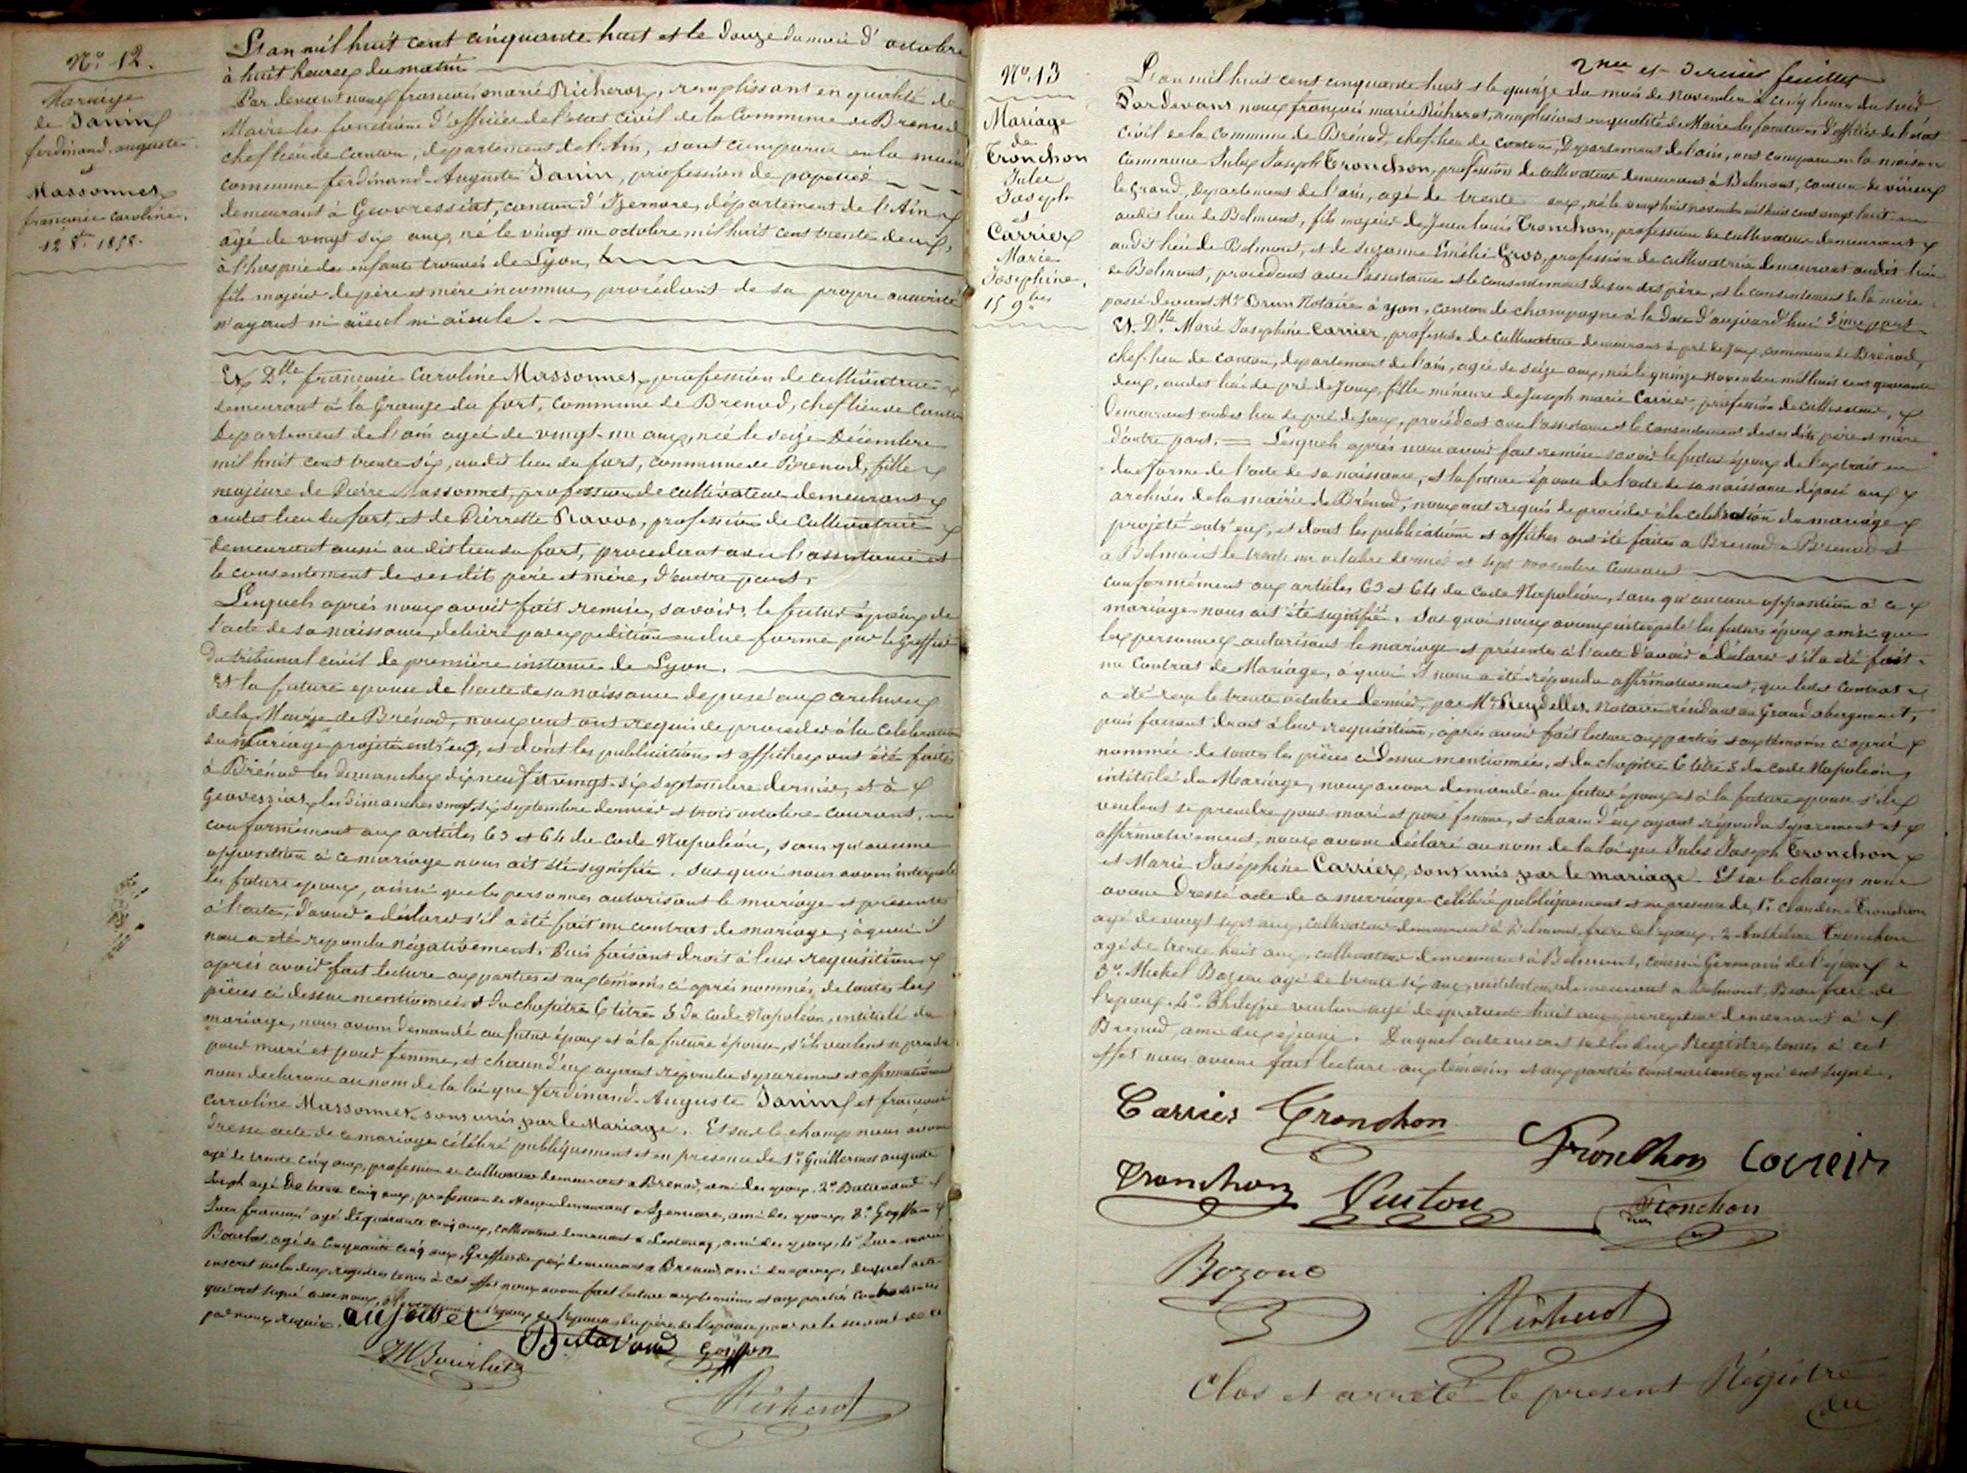 No. 12.
Mariage
de Janin
ferdinand auguste
et
Massonnet
françoise caroline.
12 8bre 1858.
L'an mil huit cent cinquante huit et le douze du mois d'octobre
à huit heures du matin
Par devant nous françois marie Richerot, remplissant en qualité de
Maire les fonctions d'officier de l'état civil de la Commune de Brenod
chef lieu de canton, département de l'Ain, sont comparus en la maison
commune ferdinand-Auguste Janin, profession de papetier
demeurant à Geovressiat, canton d'Izernore, département de l'Ain
agé de vingt six ans, né le vingt un octobre mil huit cent trente deux,
à l'hospice des enfants trouvés de Lyon,
fils majeur de père et mère inconnus, procédant de sa propre autorité
n'ayant ni aïeul ni aïeule.
Et Dlle françoise Caroline Massonnet, profession de cultivatrice
demeurant à la Grange du fort, commune de Brenod, chef lieu de Canton
Departement de l'ain agée de vingt-un ans, née le seize Décembre
mil huit cent trente six, audit lieu du fort, commune de Brenod, fille
majeure de Pierre Massonnet, profession de cultivateur demeurant
audit lieu du fort, et de Pierrette Ravos, profession de Cultivatrice
demeurant aussi au dit lieu du fort, procédant avec l'assistance et
le consentement de ses dits père et mère, d'autre part.
Lesquels après nous avoir fait remise, savoir, le futur époux de
l'acte de sa naissance, délivré par expédition en due forme par le Greffier
du tribunal civil de première instance de Lyon.
Et la future épouse de l'acte de sa naissance déposé aux archives
de la Mairie de Brénod, nous ont requis de procéder à la célébration
du Mariage projeté entr'eux, et dont les publications et affiches ont été faites
à Brénod les dimanches dix neuf et vingt-six septembre dernier, et à
Geovressiat, les Dimanches vingt six septembre dernier et trois octobre courant,
conformément aux articles 63 et 64 du Code Napoléon, sans qu'aucune
opposition à ce mariage nous ait été signifiée. Sur quoi nous avons interpelé
les futurs époux, ainsi que les personnes autorisant le mariage et présentes
à l'acte, d'avoir à déclarer s'il a été fait un contrat de mariage; à quoi il
nous a été répondu négativement. Puis faisant droit à leur réquisition
après avoir fait lecture aux parties et aux témoins ci après nommés, de toutes les
pièces ci dessus mentionnées et du chapitre 6 titre 5 du Code Napoléon, intitulé du
mariage, nous avons demandé au futur époux et à la future épouse, s'ils veulent se prendre
pour mari et pour femme, et chacun d'eux ayant répondu séparément et affirmativement
nous déclarons au nom de la loi que ferdinand-Auguste Janin et françoise
Caroline Massonnet sont unis par le Mariage. Et sur le champ nous avons
dressé acte de ce mariage célébré publiquement et en présence de 1° Guillermet auguste
agé de trente cinq ans, profession de cultivateur demeurant à Brenod, ami des époux. 2°
Joseph agé de trente cinq ans, profession de demeurant à Izernore, ami des époux, 3°
Jean françois agé de quarante cinq ans, cultivateur demeurant à ami des époux, 4° Jean marie
agé de cinquante cinq ans, Greffier de paix demeurant à Brenod, ami des époux, duquel acte
inscrit sur les deux registres tenus à cet effet nous avons fait lecture aux témoins et aux parties contractantes
qui ont signé avec nous, et non l'épouse père de l'épouse pour ne le savoir de ce
par nous requis.
Gojffon
JM Bourbat
Richerot
No. 13
Mariage
de
Tronchon
Jules
Joseph
et
Carrier
Marie
Josephine.
15 9bre
2me et dernier feuillet
L'an mil huit cent cinquante huit et le quinze du mois de Novembre à cinq heures du soir
Pardevant nous françois marie Richerot, remplissant en qualité de Maire les fonctions d'officier de l'état
civil de la commune de Brénod, chef lieu de canton, Département de l'ain, ont comparu en la maison
commune Jules Joseph Tronchon, profession de cultivateur demeurant à Belmont, canton de virieux
le grand, Département de l'ain, agé de trente ans, né le vingt huit novembre mil huit cent vingt huit
audit lieu de Belmont, fils majeur de Jean louis Tronchon, profession de cultivateur demeurant
audit lieu de Belmont, et de Suzanne Emélie Gros, profession de cultivatrice demeurant audit lieu
de Belmont, procédant avec l'assistance et le consentement de son dit père, et le consentement de la mère
passé devant Me Brun Notaire à yon, canton de champagne à la date d'aujourd'hui d'une part
Et Dlle Marie Josephine Carrier, profession de Cultivatrice demeurant à pré de Joux, commune de Brénod,
chef-lieu de canton, département de l'ain, agée de seize ans, née le quinze novembre mil huit cent quarante
deux, audit lieu de pré de Joux, fille mineure de Joseph marie Carrier, profession de cultivateur,
Demeurant audit lieu de pré de Joux, procédant avec l'assistance et le consentement de ses dits père et mère
d'autre part. Lesquels après nous avoir fait remise savoir le futur époux de l'extrait en
due forme de l'acte de sa naissance, et la future épouse de l'acte de sa naissance déposé aux
archives de la mairie de Brénod, nous ont requis de procéder à la célébration du mariage
projeté entr'eux, et dont les publications et affiches ont été faites à Brenod a Brenod et
à Belmont le trente un octobre dernier et sept novembre courant
conformément aux articles 63 et 64 du Code Napoléon, sans qu'aucune opposition à ce
mariage nous ait été signifiée. Sur quoi nous avons interpelé les futurs époux ainsi que
les personnes autorisant le mariage et présentes à l'acte d'avoir à déclarer s'il a été fait
un Contrat de Mariage, à quoi Il nous a été répondu affirmativement, que ledit Contrat
a été reçu le trente octobre dernier, par Me Reydellet, Notaire résidant au Grand abergement,
puis faisant droit à leur réquisition, après avoir fait lecture aux parties et aux témoins ci après
nommés de toutes les pièces ci dessus mentionnées, et du chapitre 6 titre 5 du Code Napoléon,
intitulé du Mariage, nous avons demandé au futur époux et à la future épouse s'ils
veulent se prendre pour mari et pour femme, et chacun d'eux ayant répondu séparément et
affirmativement, nous avons déclaré au nom de la loi que Jules Joseph Tronchon
et Marie Joséphine Carrier, sont unis par le mariage. Et sur le champ nous
avons dressé acte de ce mariage célébré publiquement et en présence de 1° Tronchon
agé de vingt sept ans, cultivateur demeurant à Belmont, frère de l'époux, 2° Anthelme Tronchon
agé de trente huit ans, cultivateur demeurant à Belmont, cousin Germain de l'époux
3° Michel Bozone agé de trente six ans, instituteur, demeurant à Belmont, Beau frère de
l'époux. 4° Philippe Vuiton agé de quarante huit ans percepteur demeurant à
Brenod, ami des époux. Duquel acte inscrit sur les deux Registres tenus à cet
effet nous avons fait lecture aux témoins et aux parties contractantes qui ont signé.
Carrier Tronchon
Tronchon Carrier
Tronchon Vuiton Tronchon
Bozone
Richerot
Clos et arrêté le present Régistre
du